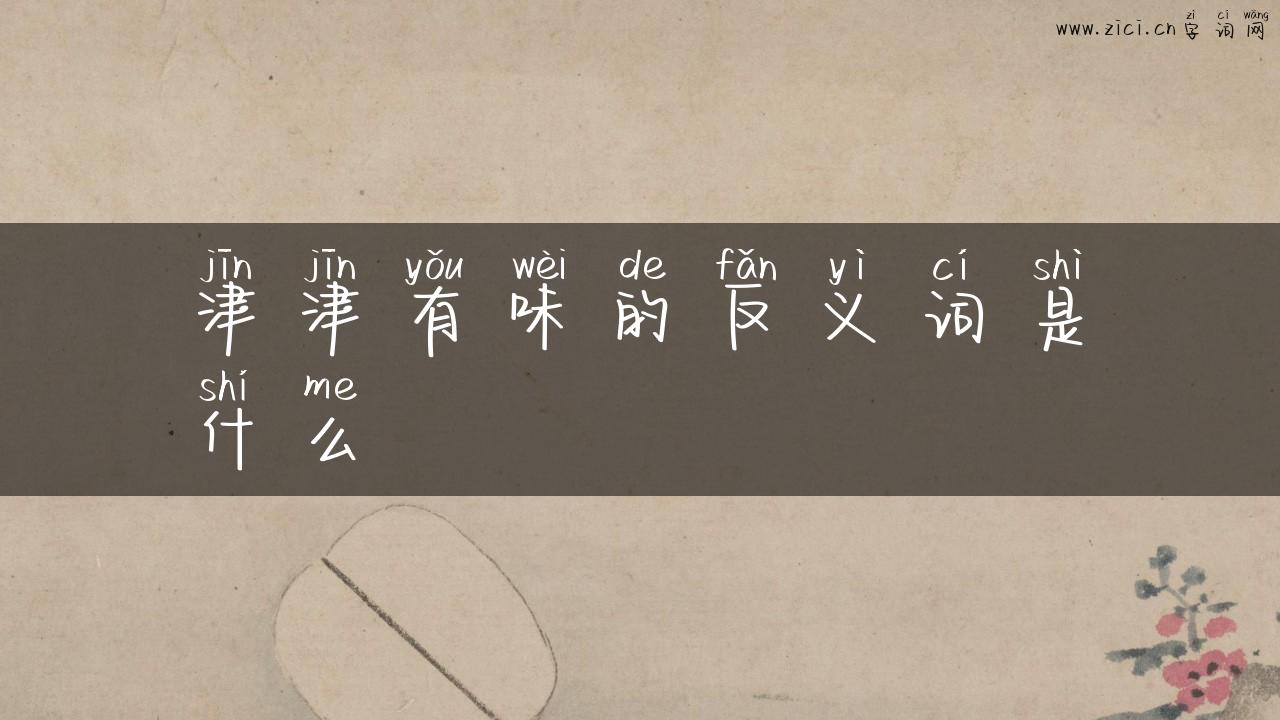 zì cí wǎng
www.zici.cn 字词网
jīn jīn yǒu wèi de fǎn yì cí shì
津津有味的反义词是
shí me
什么